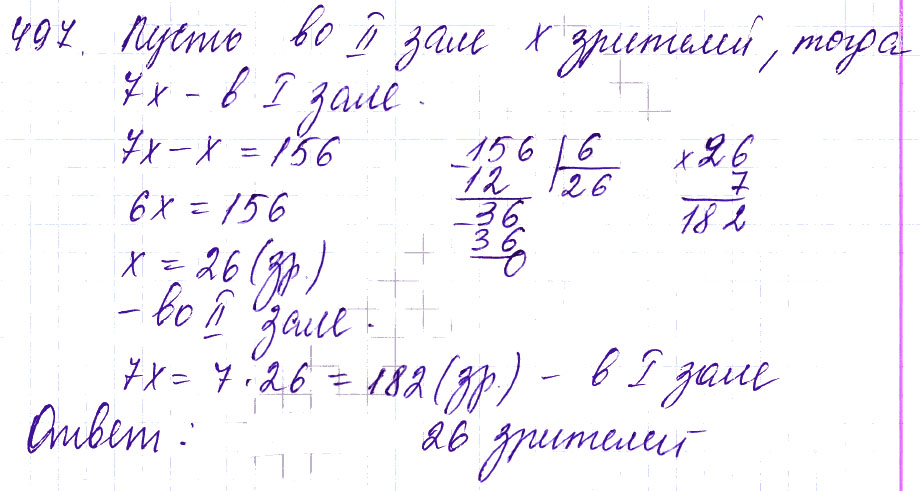 497. Пусть во II зале x зрителей, тогда
7x – в I зале.
7x – x = 156
6x = 156
x = 26 (зр.)
– во II зале.
156 | 6
– 12 26
– 36
36
0
× 26
7
182
7x = 7 · 26 = 182 (зр.) – в I зале
Ответ: 26 зрителей